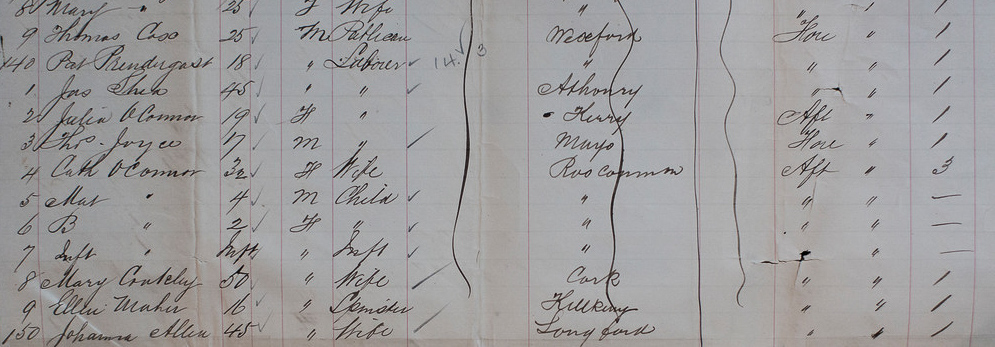 8 Mary " 25 F Wife " " " 1
9 Thomas Cass 25 M Publican Wexford Fore " 1
140 Pat Prendergast 18 " Laborer 14. 3 " " " 1
1 Jas Shea 45 " " Athenry " " 1
2 Julia O'Connor 19 F " Kerry Aft " 1
3 Thos. Joyce 17 M " Mayo Fore " 1
4 Cath O'Connor 32 F Wife Roscommon Aft " 3
5 Mat " 4 M Child " " " —
6 B " 2 F " " " " —
7 Inft " Inft " Inft " " " —
8 Mary 50 " Wife Cork " " 1
9 Ellen Maher 16 " Spinster Kilkeny " " 1
150 Johanna Allen 45 " Wife Longford " " 1